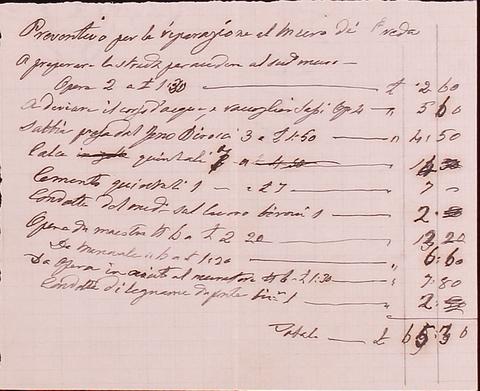 Preventivo per la riparazione al Muro di Preda
A preparare la strada per andare al sud° muro —
Opera 2 a £ 1:30 — £ 2 60
A deviare il corso d'acqua, e raccoglier sassi Op. 4 — " 5 60
Sabbia presa dal Birocci 3 a £ 1:50 — " 4: 50
Calce quintali — "
Cemento quintali 1 — a £ 7 — " 7 –
Condotte del sul lavoro birocci 1 — " 2
Opera da maestro N 6 a £ 2 20 — " 13 20
Da manuale 6 a £ 1:10 — " 6: 60
Da Opera in al N 6 £ 1:30 — " 7: 80
Condotte di legname da biro 1 — " 2
Totale — £